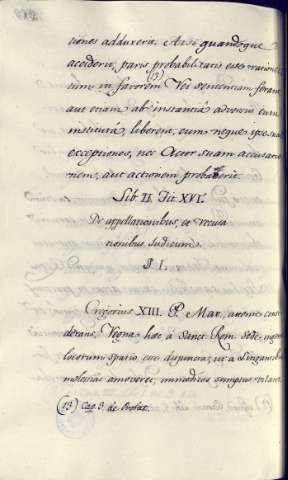 tiones adduxerit. At si quandoque
acciderit, paris probabilitatis esse rationes
tum in favorem (13) Rei sententiam ferant
aut etiam ab instantiâ adversus eum
institutâ, liberent, cum neque ipse suas
exceptiones, nec Actor suam accusatio
nem, aut actionem probaverit.
Lib. II. Tit. XVI.
De appellationibus, et recusa
tionibus Judicum.
§ I.
Gregorius XIII. P. Max., attente consi
derans, Regna hæc à Sanct. Rom. Sede, ingenti
locorum spatio esse disjuncta, ut à litigantibus
molestias amoveret, immodicos sumptus vitaret
(13) Cap. 3. de Probat.